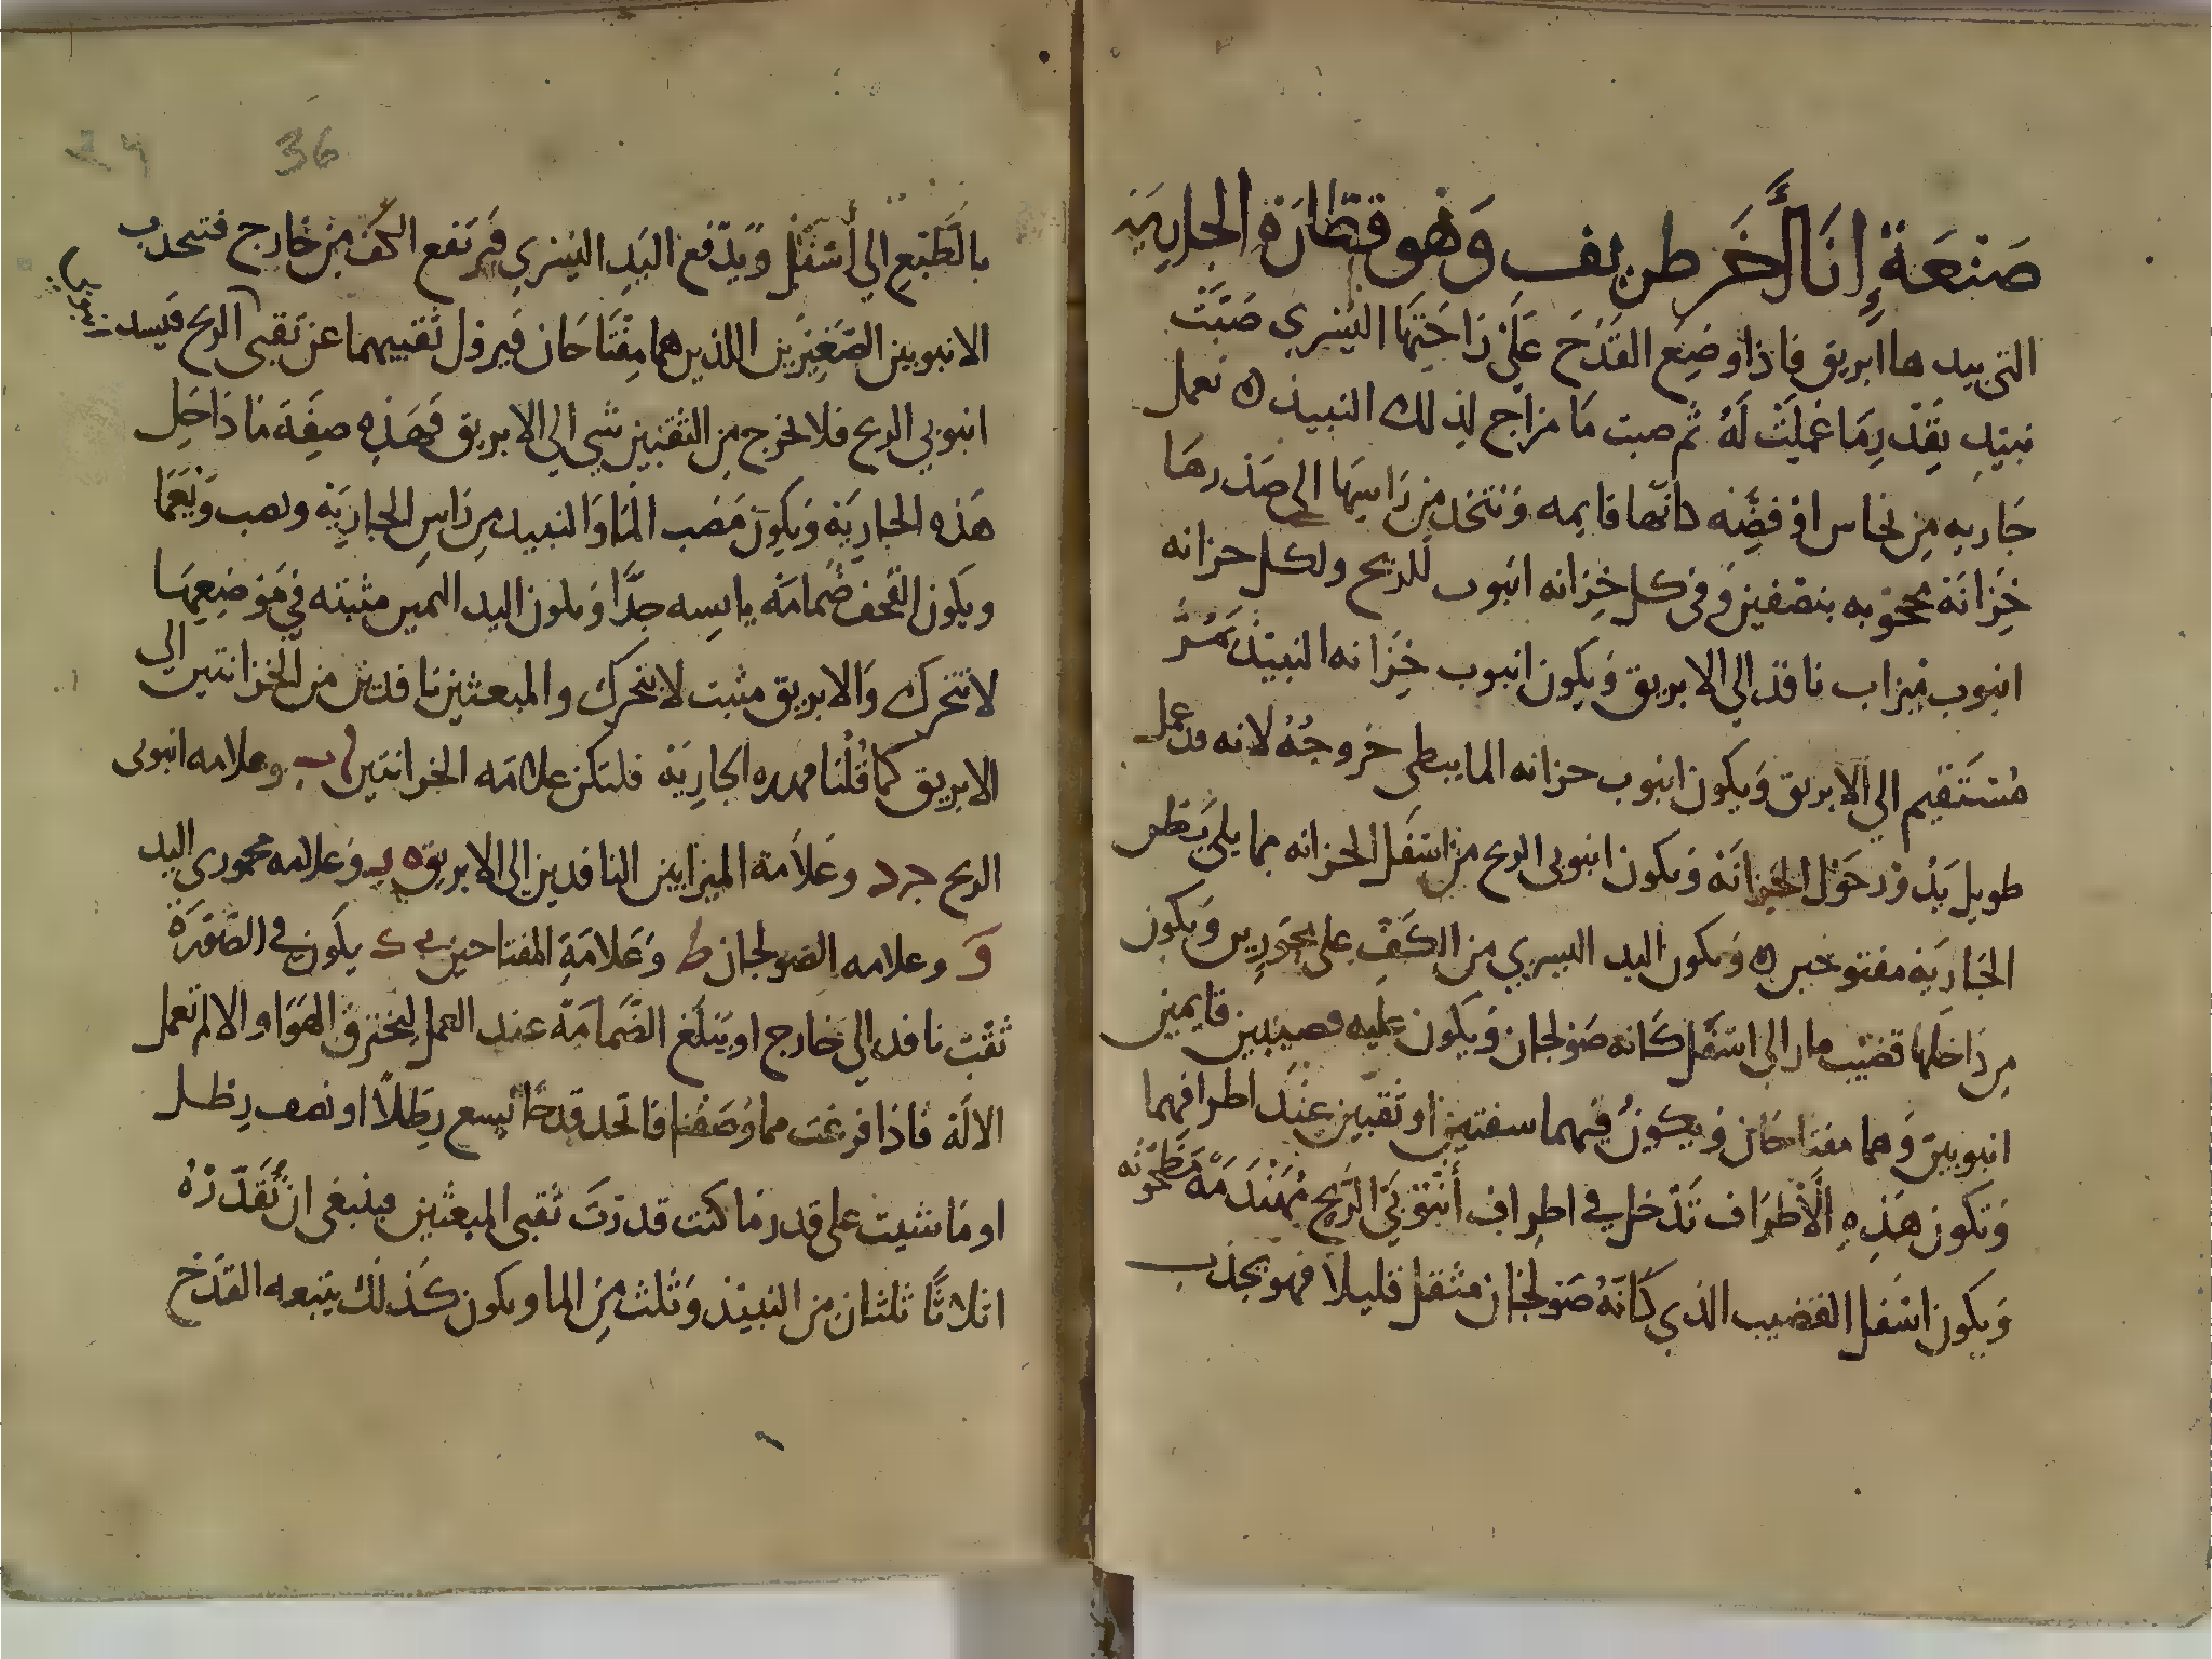 صَنْعَةُ إِنَاءٍ اخَر طريف وَهُو قنطارة الجاريَة
التي بيدها ابريق فاذا وضِع القَدَح عَلَى رَاحَتِهَا اليُسْرى صَبَّتْ
نبيذ بقَدْرِ مَا عُمِلَتْ لَهُ ثُم صبت مَا مزاج لِذلك النبيذ ه تعمل
جَاريه مِن نحاس اوْ فضِّه كانَّها قايمه وَتتخذ مِن رَاسِهَا الى صَدْرهَا
خِزَانَة محجوبه بنصفين وَفى كل خِزانه انبوب للريح ولكل خزانه
انبوب ميزاب نافذ الي الابريق وَيكون انبوب خِزَانه النبيذ يَمُرُّ
مُسْتَقيم الي الابريق وَيكون انبوب خزانه الما يبطى خروجُهُ لانه قد عمل
طويل يَدُوْر حَوْل الخِزانَة وَيكون انبوبى الريح من اسْفَل الخزانه مما يلى بَطن
الجَاريَة مفتوحين ه وَيكون اليد اليسري من الكَفّ على محورين وَيكون
مِن دَاخلها قضيْب مار الى اسْفَل كَانه صَولجان وَيكون عليه قصبتين قايمين
انبوبين وَهما مفتاحَان وَيكونُ فيهما سفتين او ثقبين عِنْدَ اطرافهما
وَتكون هَذِهِ الْأَطْرَاف تَدْخل في اطراف أُنْبُوبَيِ الرِّيح مُهَنْدَمَةً مَطحُونه
وَيكون اسْفل القضيب الذي كَانَّهُ صَولجَان مثقل قليلا فهو يجذب
36
بالطَّبْع الي أَسْفَل وَيدْفع اليَد اليُسْري فَترتفع الكف مِن خَارج فتنجذب
الانبوبين الصَّغِيرَين اللذين هما مِفْتَاحَان فَيزول ثقبيهما عن ثقبى الريح فَيسد
انبوبي الريح فلا يخرج مِن الثقبين شي الي الابريق فهَذِه صِفَة مَا دَاخِل
هَذه الجاريَة وَيكون مَصَب المَا وَالنبيذ مِن رَاسِ الجاريَة وَيصب وَيُعَمَّا
ويكون القحف ضمامَة يابِسه جِدًّا وَيكون اليد اليمين مثبته في مَوْضِعِهَا
لا تتحرك وَالابريق مثبت لا يتحرك والمبعثين نافذين من الخزانتين الي
الابريق كما قُلْنا فهذه الجاريَة فلتكن علامَه الخزانتين ا ب وعلامه انبوبى
الريح ج د وعَلامة الميزابين النافذين الى الابريق ه ز وَعلامه محورى اليد
وَ وعلامه الصولجان ط وَعَلامَةِ المفتاحين ي ك يكون في الصُّوْرَة
ثقب نافذ الي خارج او يَبْلغ الضَّمامَة عند العمل ليخترق الهوَا والا لم تعمل
الالَة فاذا فرغت مما وَصَفنا فاتخذ قدحًا يسع رِطَلاً او نصف رِطل
او مَا شيت على قدر مَا كنت قدرتَ ثقبى المبعثين فينبغى ان تُقَدِّرَهُ
اثلاثًا ثلثان من النبيذ وَثلث مِن الما ويكون كذلك يتبعه القَدَح